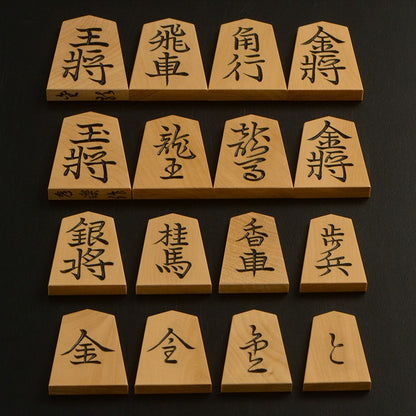 王將 飛車 角行 金將
玉將 龍王 龍馬 金將
銀将 桂馬 香車 歩兵
金 全 と